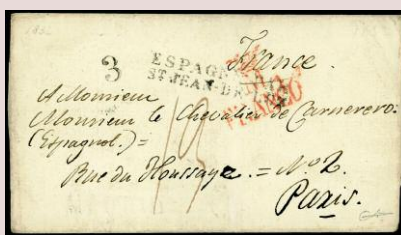 3
ESPAGNE
ST JEAN-DE
France.
A Monsieur
Monsieur le Chevalier de Carnerero.
(Espagnol.) =
Rue du Houssaye. = No. 2.
Paris.